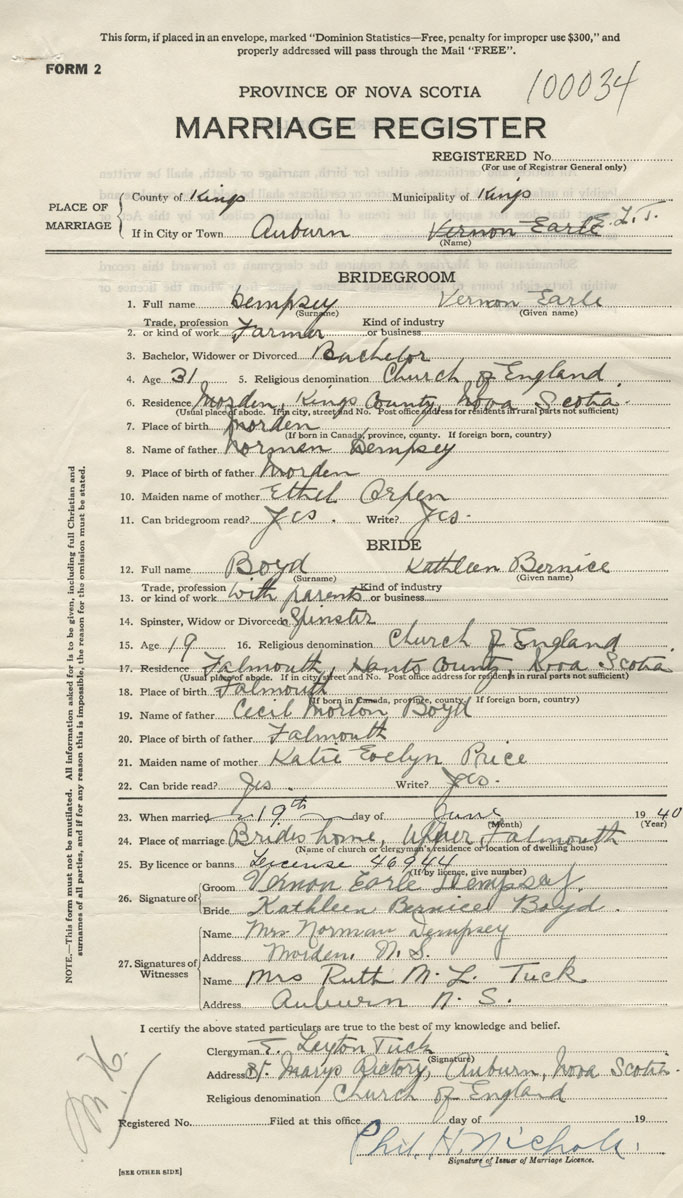 This form, if placed in an envelope, marked "Dominion Statistics—Free, penalty for improper use $300," and
properly addressed will pass through the Mail "FREE".
FORM 2
100034
PROVINCE OF NOVA SCOTIA
MARRIAGE REGISTER
REGISTERED No.
(For use of Registrar General only)
PLACE OF MARRIAGE
County of Kings Municipality of Kings
If in City or Town Auburn Vernon Earle E. L. T.
(Name)
BRIDEGROOM
1. Full name Dempsey Vernon Earle
(Surname) (Given name)
2. Trade, profession or kind of work Farmer Kind of industry or business
3. Bachelor, Widower or Divorced Bachelor
4. Age 31 5. Religious denomination Church of England
6. Residence Morden, Kings County, Nova Scotia
(Usual place of abode. If in city, street and No. Post office address for residents in rural parts not sufficient)
7. Place of birth Morden
(If born in Canada, province, county. If foreign born, country)
8. Name of father Norman Dempsey
9. Place of birth of father Morden
10. Maiden name of mother Ethel Orpen
11. Can bridegroom read? Yes. Write? Yes.
BRIDE
12. Full name Boyd Kathleen Bernice
(Surname) (Given name)
13. Trade, profession or kind of work with parents Kind of industry or business
14. Spinster, Widow or Divorced Spinster
15. Age 19 16. Religious denomination Church of England
17. Residence Falmouth, Hants County, Nova Scotia
(Usual place of abode. If in city, street and No. Post office address for residents in rural parts not sufficient)
18. Place of birth Falmouth
(If born in Canada, province, county. If foreign born, country)
19. Name of father Cecil Morton Boyd
20. Place of birth of father Falmouth
21. Maiden name of mother Katie Evelyn Price
22. Can bride read? Yes. Write? Yes.
23. When married 19th day of June 1940
(Month) (Year)
24. Place of marriage Brides home, Upper Falmouth
(Name of church or clergyman's residence or location of dwelling house)
25. By licence or banns License 46944
(If by licence, give number)
26. Signature of
Groom Vernon Earle Dempsey.
Bride Kathleen Bernice Boyd.
27. Signatures of Witnesses
Name Mrs Norman Dempsey
Address Morden, N. S.
Name Mrs Ruth M. L. Tuck
Address Auburn N. S.
I certify the above stated particulars are true to the best of my knowledge and belief.
Clergyman E. Layton Tuck
(Signature)
Address St. Marys Rectory, Auburn, Nova Scotia.
Religious denomination Church of England
Registered No. Filed at this office day of 19
Phil. H. Nichols.
Signature of Issuer of Marriage Licence.
[SEE OTHER SIDE]
NOTE.—This form must not be mutilated. All information asked for is to be given, including full Christian and
surnames of all parties, and if for any reason this is impossible, the reason for the omission must be stated.